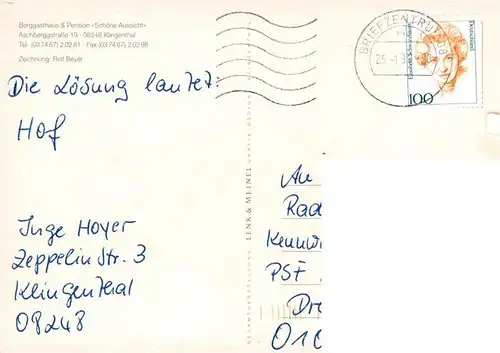 Berggasthaus & Pension »Schöne Aussicht«
Aschbergstraße 19 · 08248 Klingenthal
Tel (03 74 67) 2 02 81 · Fax (03 74 67) 2 02 98
Zeichnung: Rolf Beyer
Die Lösung lautet:
Hof
Inge Hoyer
Zeppelin Str. 3
Klingenthal
08248
LENK & MEINEL
BRIEFZENTRUM 08
Deutschland
100
An
Rad
Kennw
PSF
Dre
010